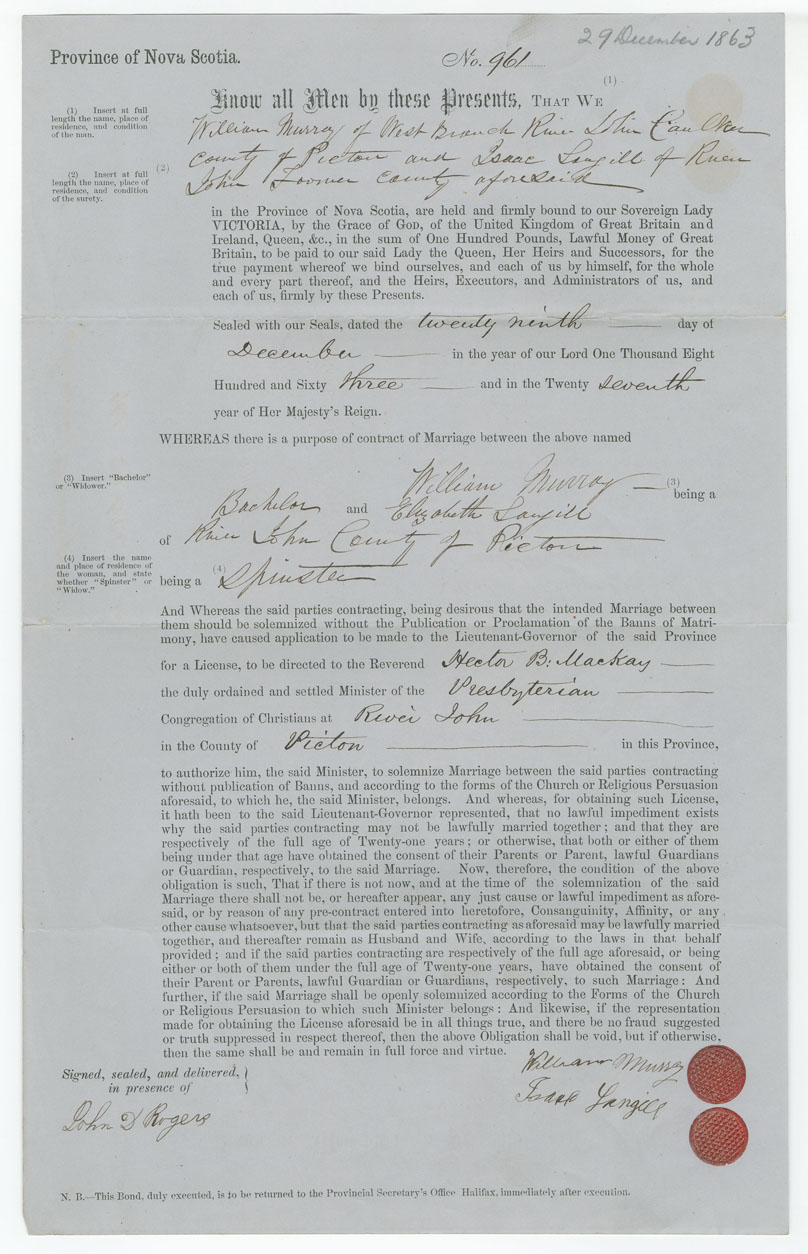 29 December 1863
Province of Nova Scotia.
No. 961
(1)
Know all Men by these Presents, THAT WE
(1) Insert at full
length the name, place of
residence, and condition
of the man.
William Murray of West Branch River John Caulker
County of Picton and Isaac Langill of River
(2)
John Farmer County aforesaid
(2) Insert at full
length the name, place of
residence, and condition
of the surety.
in the Province of Nova Scotia, are held and firmly bound to our Sovereign Lady
VICTORIA, by the Grace of GOD, of the United Kingdom of Great Britain and
Ireland, Queen, &c., in the sum of One Hundred Pounds, Lawful Money of Great
Britain, to be paid to our said Lady the Queen, Her Heirs and Successors, for the
true payment whereof we bind ourselves, and each of us by himself, for the whole
and every part thereof, and the Heirs, Executors, and Administrators of us, and
each of us, firmly by these Presents.
Sealed with our Seals, dated the twenty ninth day of
December in the year of our Lord One Thousand Eight
Hundred and Sixty three and in the Twenty seventh
year of Her Majesty's Reign.
WHEREAS there is a purpose of contract of Marriage between the above named
(3) Insert "Bachelor"
or "Widower."
William Murray (3) being a
Bachelor and Elizabeth Langill
of River John County of Picton
(4) Insert the name
and place of residence of
the woman, and state
whether "Spinster" or
"Widow."
being a (4) Spinster
And Whereas the said parties contracting, being desirous that the intended Marriage between
them should be solemnized without the Publication or Proclamation of the Banns of Matri-
mony, have caused application to be made to the Lieutenant-Governor of the said Province
for a License, to be directed to the Reverend Hector B: MacKay
the duly ordained and settled Minister of the Presbyterian
Congregation of Christians at River John
in the County of Picton in this Province,
to authorize him, the said Minister, to solemnize Marriage between the said parties contracting
without publication of Banns, and according to the forms of the Church or Religious Persuasion
aforesaid, to which he, the said Minister, belongs. And whereas, for obtaining such License,
it hath been to the said Lieutenant-Governor represented, that no lawful impediment exists
why the said parties contracting may not be lawfully married together; and that they are
respectively of the full age of Twenty-one years; or otherwise, that both or either of them
being under that age have obtained the consent of their Parents or Parent, lawful Guardians
or Guardian, respectively, to the said Marriage. Now, therefore, the condition of the above
obligation is such, That if there is not now, and at the time of the solemnization of the said
Marriage there shall not be, or hereafter appear, any just cause or lawful impediment as afore-
said, or by reason of any pre-contract entered into heretofore, Consanguinity, Affinity, or any
other cause whatsoever, but that the said parties contracting as aforesaid may be lawfully married
together, and thereafter remain as Husband and Wife, according to the laws in that behalf
provided; and if the said parties contracting are respectively of the full age aforesaid, or being
either or both of them under the full age of Twenty-one years, have obtained the consent of
their Parent or Parents, lawful Guardian or Guardians, respectively, to such Marriage: And
further, if the said Marriage shall be openly solemnized according to the Forms of the Church
or Religious Persuasion to which such Minister belongs: And likewise, if the representation
made for obtaining the License aforesaid be in all things true, and there be no fraud suggested
or truth suppressed in respect thereof, then the above Obligation shall be void, but if otherwise,
then the same shall be and remain in full force and virtue.
Signed, sealed, and delivered,
in presence of
William Murray
Isaac Langill
John D Rogers
N. B.—This Bond, duly executed, is to be returned to the Provincial Secretary's Office Halifax, immediately after execution.